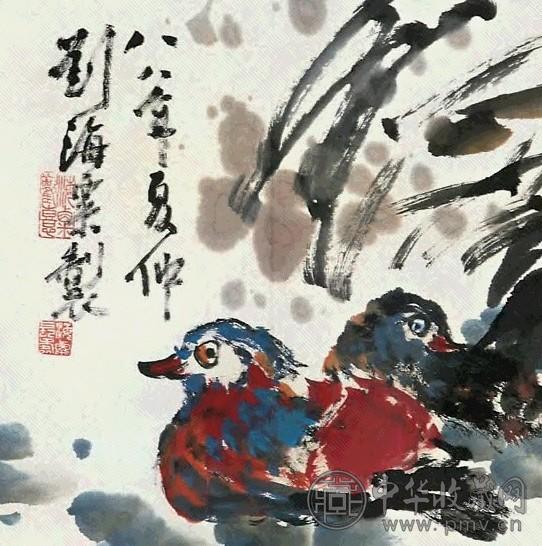 八八年夏仲
劉海粟製
中华收藏网
www.pmv.cn